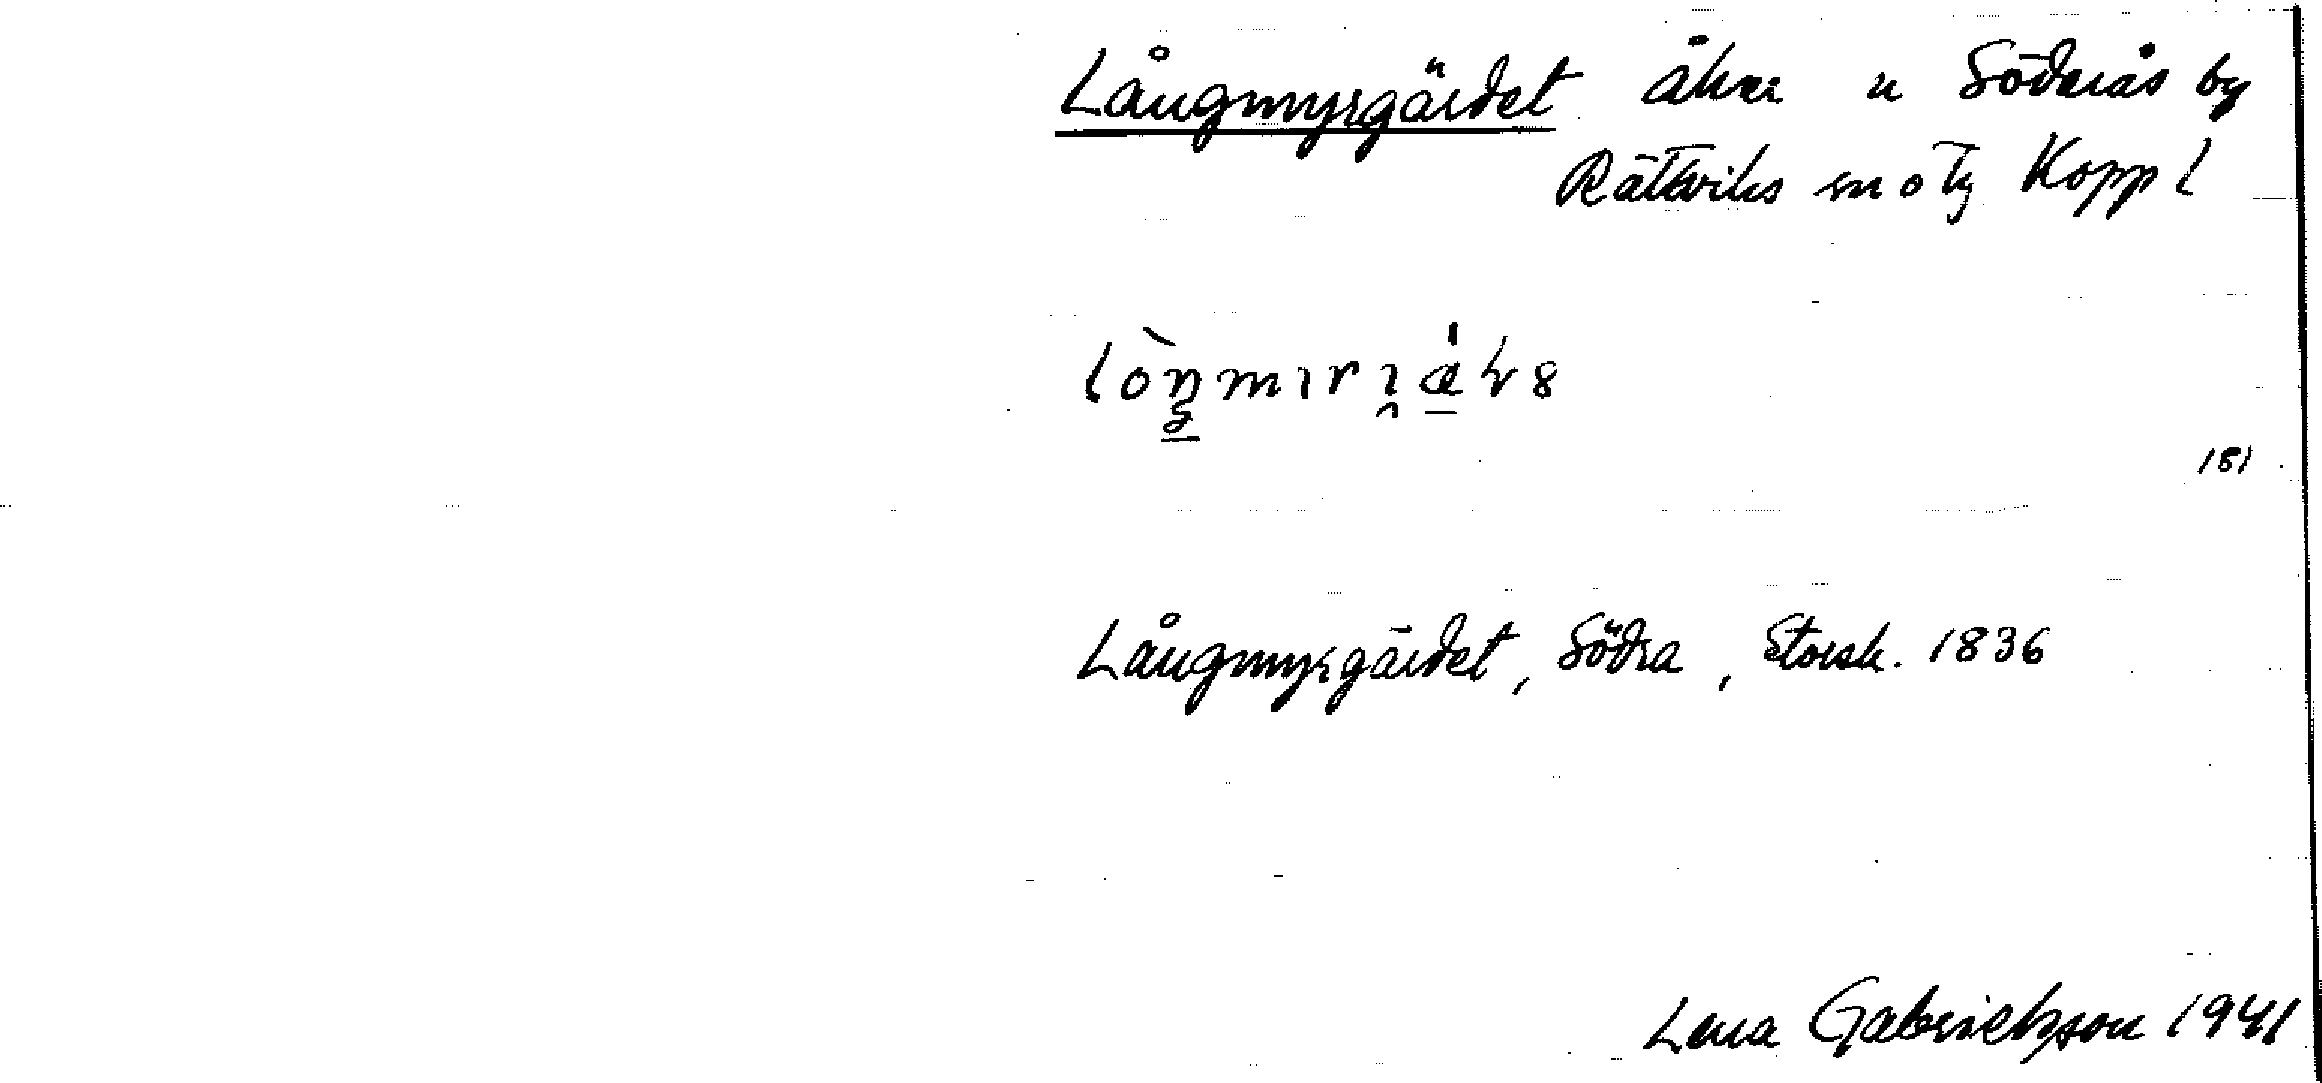 Långmyrgärdet åker n Söderås by
Rättviks sn o tg Kopp l
151
Långmyrgärdet, Södra, Storsk. 1836
Lena Gabrielsson 1941